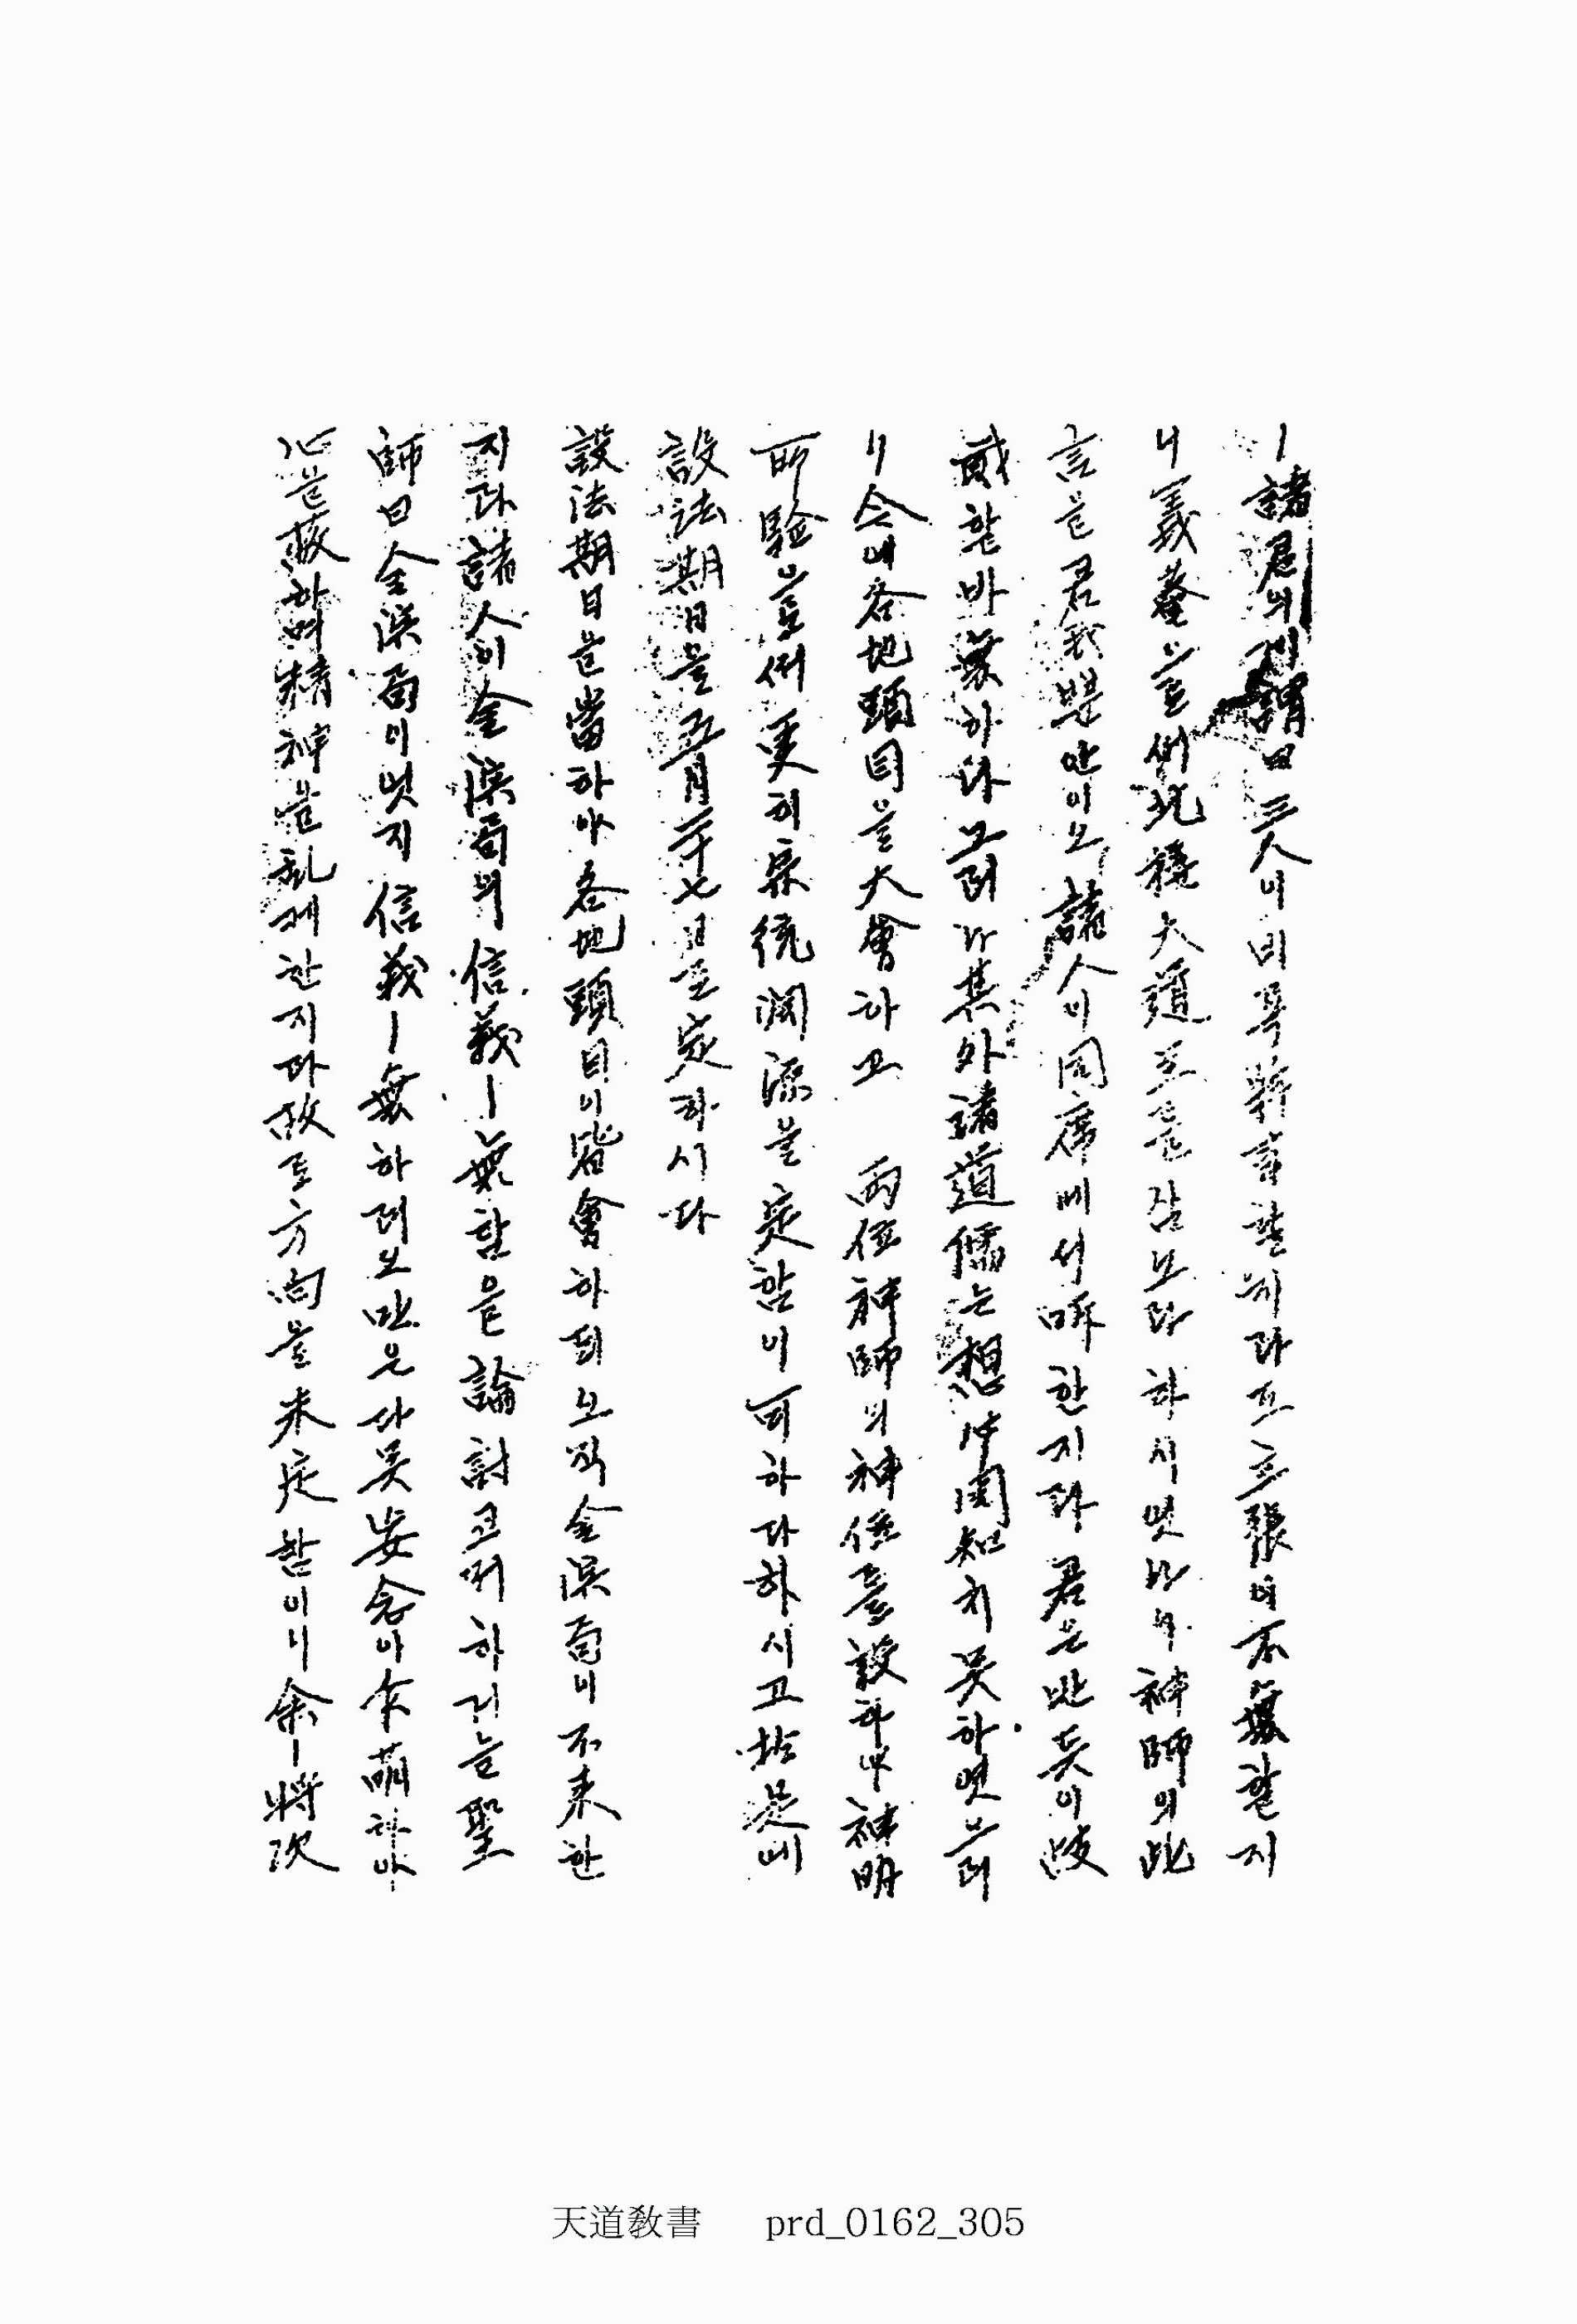 ㅣ諸君의게 謂曰 三人이 비록 特히 할지라도 主張이 不無할지
니 義菴으로써 北接大道主를 삼노라 하시엿나니 神師의 此
言은 君我뿐 안이오 諸人이 同席에서 呼한지라 君은 만듯이 歧
貳할바 無하다 그러나 其外 諸道儒는 想必 罔知치 못하엿으려
니 今에 各地頭目을 大會하고 兩位神師의 神位를 設하야 神明
所驗으로써 更히 宗統淵源을 定함이 可하다하시고 於是에
設法期日을 五月二十七日로 定하시다
設法期日을 當하야 各地頭目이 皆會하되 오직 金演局이 不來한
지라 諸人이 金演局의 信義ㅣ無함을 論討코저 하거늘 聖
師曰 金演局이 엇지 信義ㅣ無하려오만은 다못 妄念이 萌하야
心을 蔽하며 精神을 乱케한지라 故로 方向을 未定함이니 余ㅣ將次
天道敎書 prd_0162_305